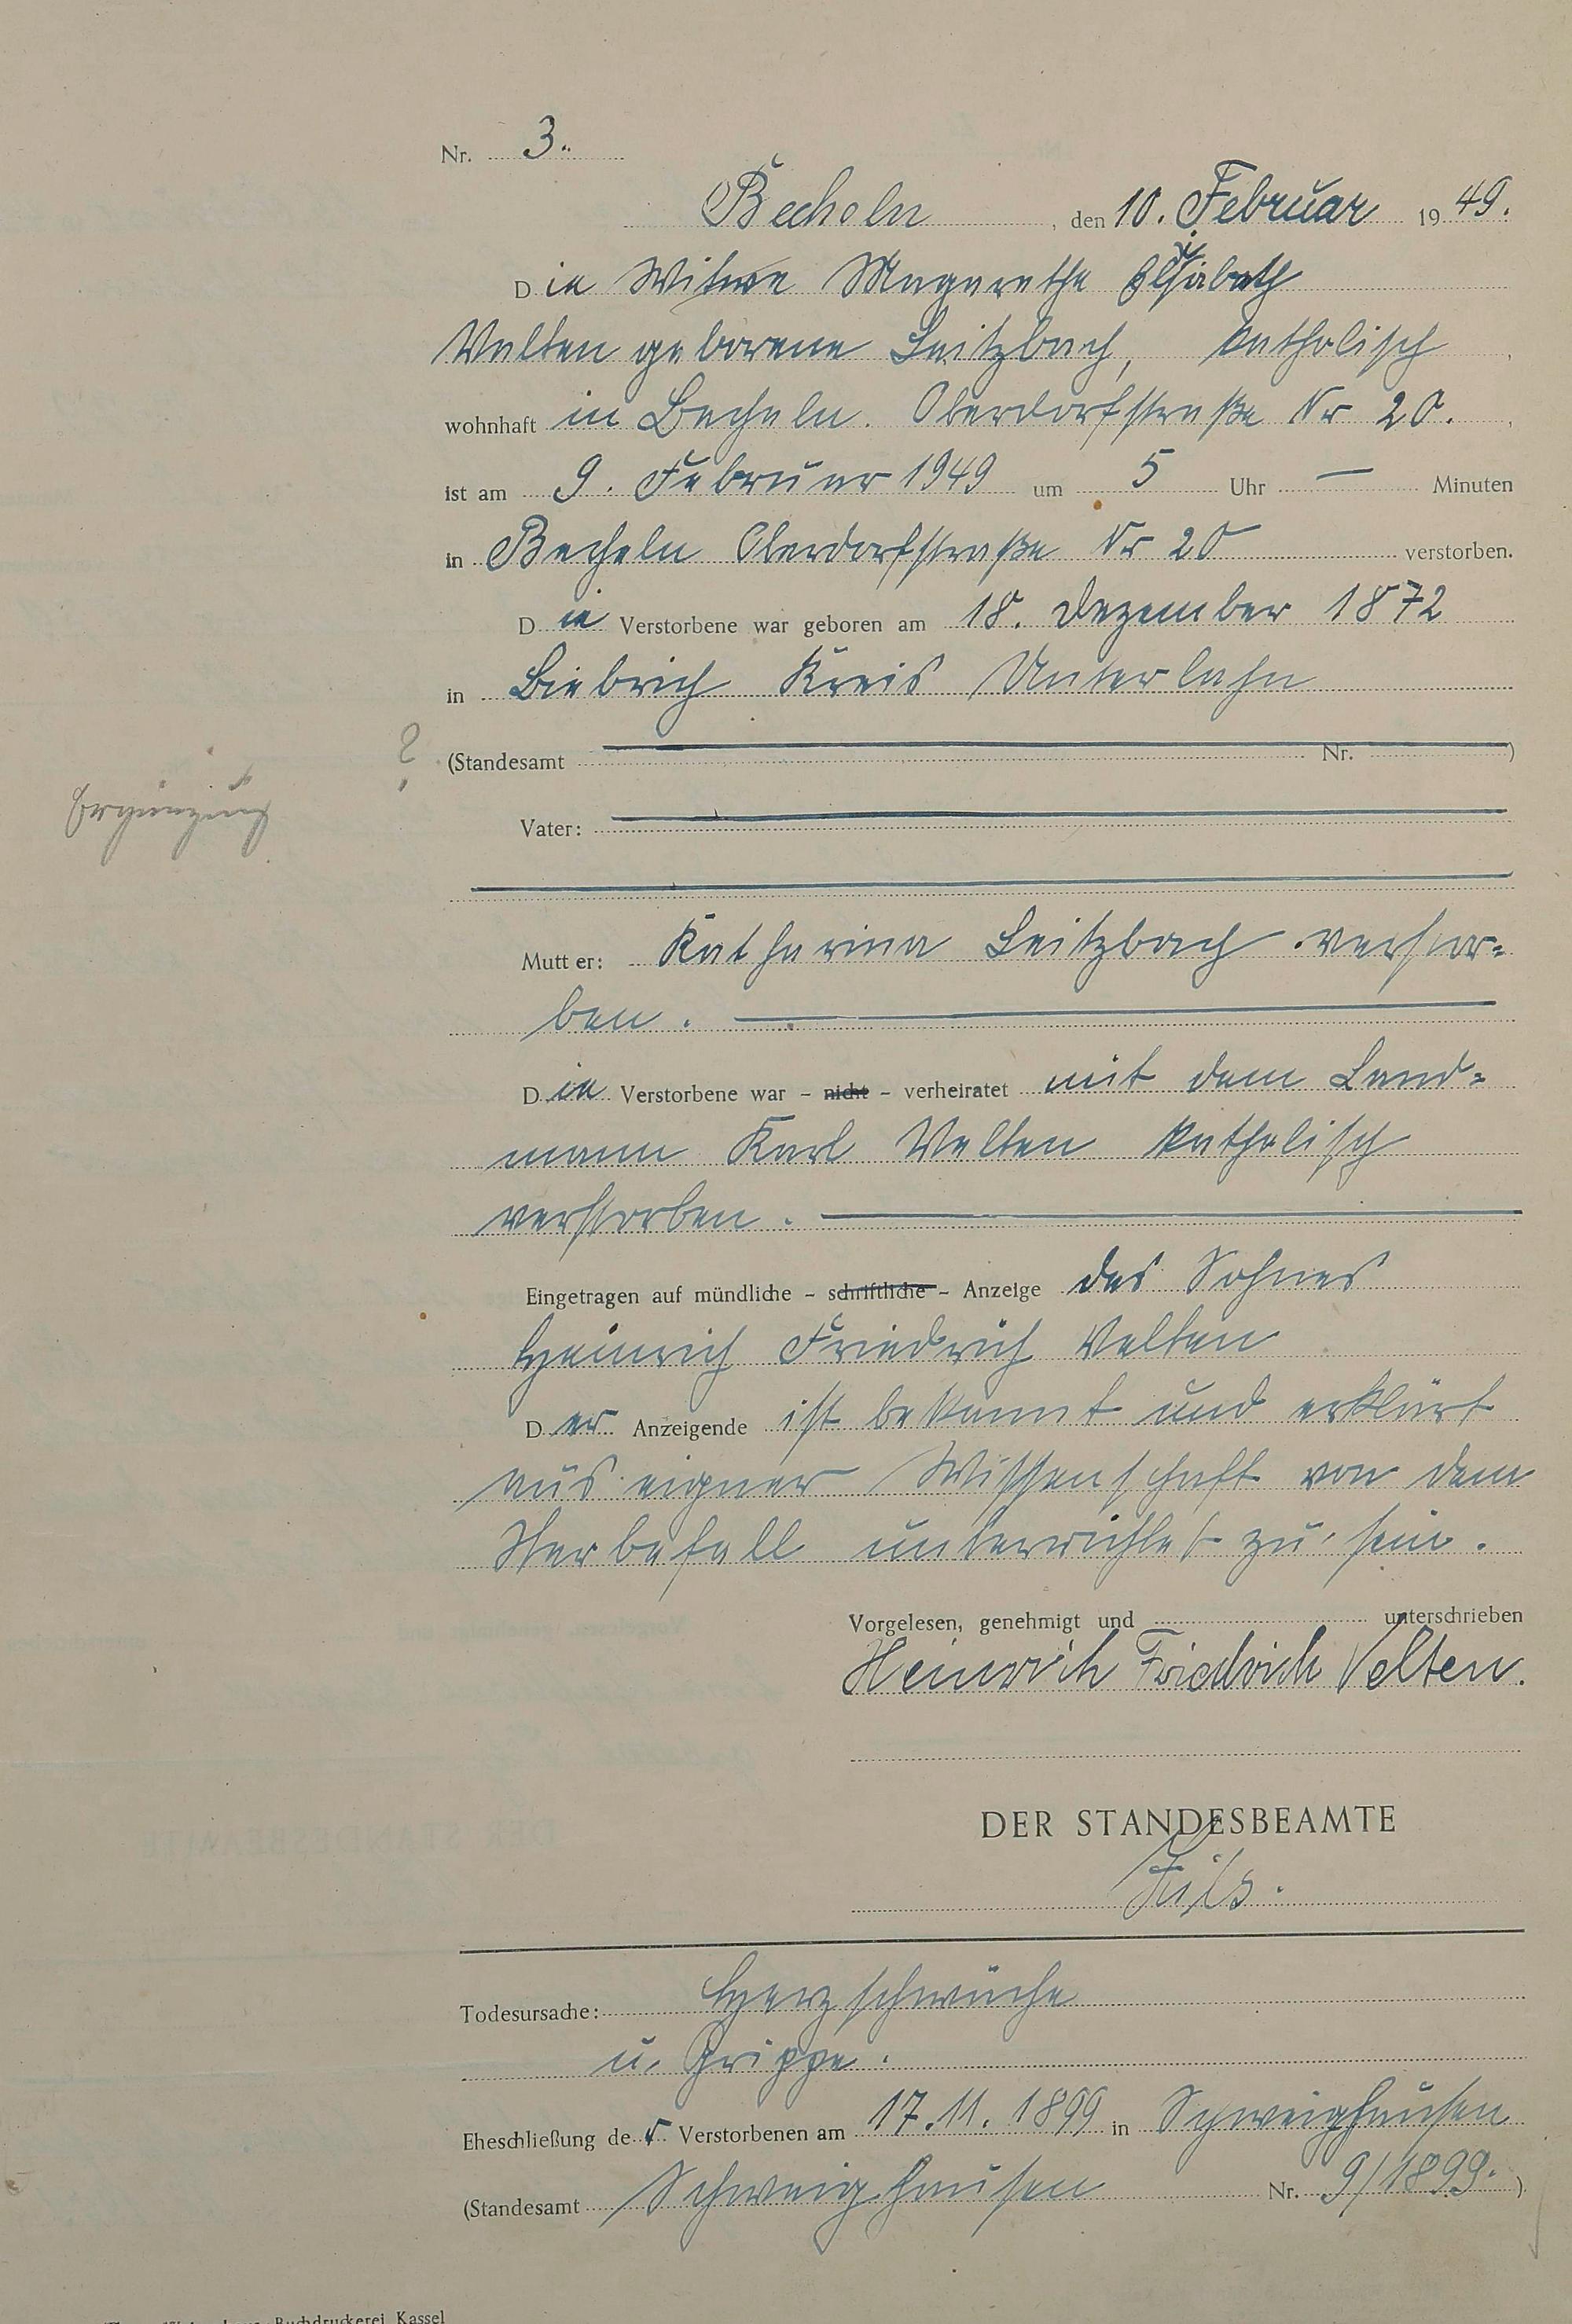 Nr. 3.
Becheln, den 10. Februar 1949.
Die Witwe Magarethe Elisabeth
Velten geborene Leitzbach, katholisch,
wohnhaft in Becheln. Oberdorfstraße Nr 20.,
ist am 9. Februar 1949 um 5 Uhr — Minuten
in Becheln Oberdorfstraße Nr 20 verstorben.
Die Verstorbene war geboren am 18. Dezember 1872
in Biebrich Kreis Unterlahn
? (Standesamt Nr. )
Ergänzung
Vater:
Mutter: Katharina Leitzbach verstor=
ben.
Die Verstorbene war - nicht - verheiratet mit dem Land=
mann Karl Velten katholisch
verstorben.
Eingetragen auf mündliche - schriftliche - Anzeige des Sohnes
Heinrich Friedrich Velten
Der Anzeigende ist bekannt und erklärt
aus eigner Wissenschaft von dem
Sterbefall unterrichtet zu sein.
Vorgelesen, genehmigt und unterschrieben
Heinrich Friedrich Velten.
DER STANDESBEAMTE
Todesursache: Herzschwäche
u. Grippe.
Eheschließung der Verstorbenen am 17.11.1899 in Schweighausen
(Standesamt Schweighausen Nr. 9/1899.)
Buchdruckerei Kassel